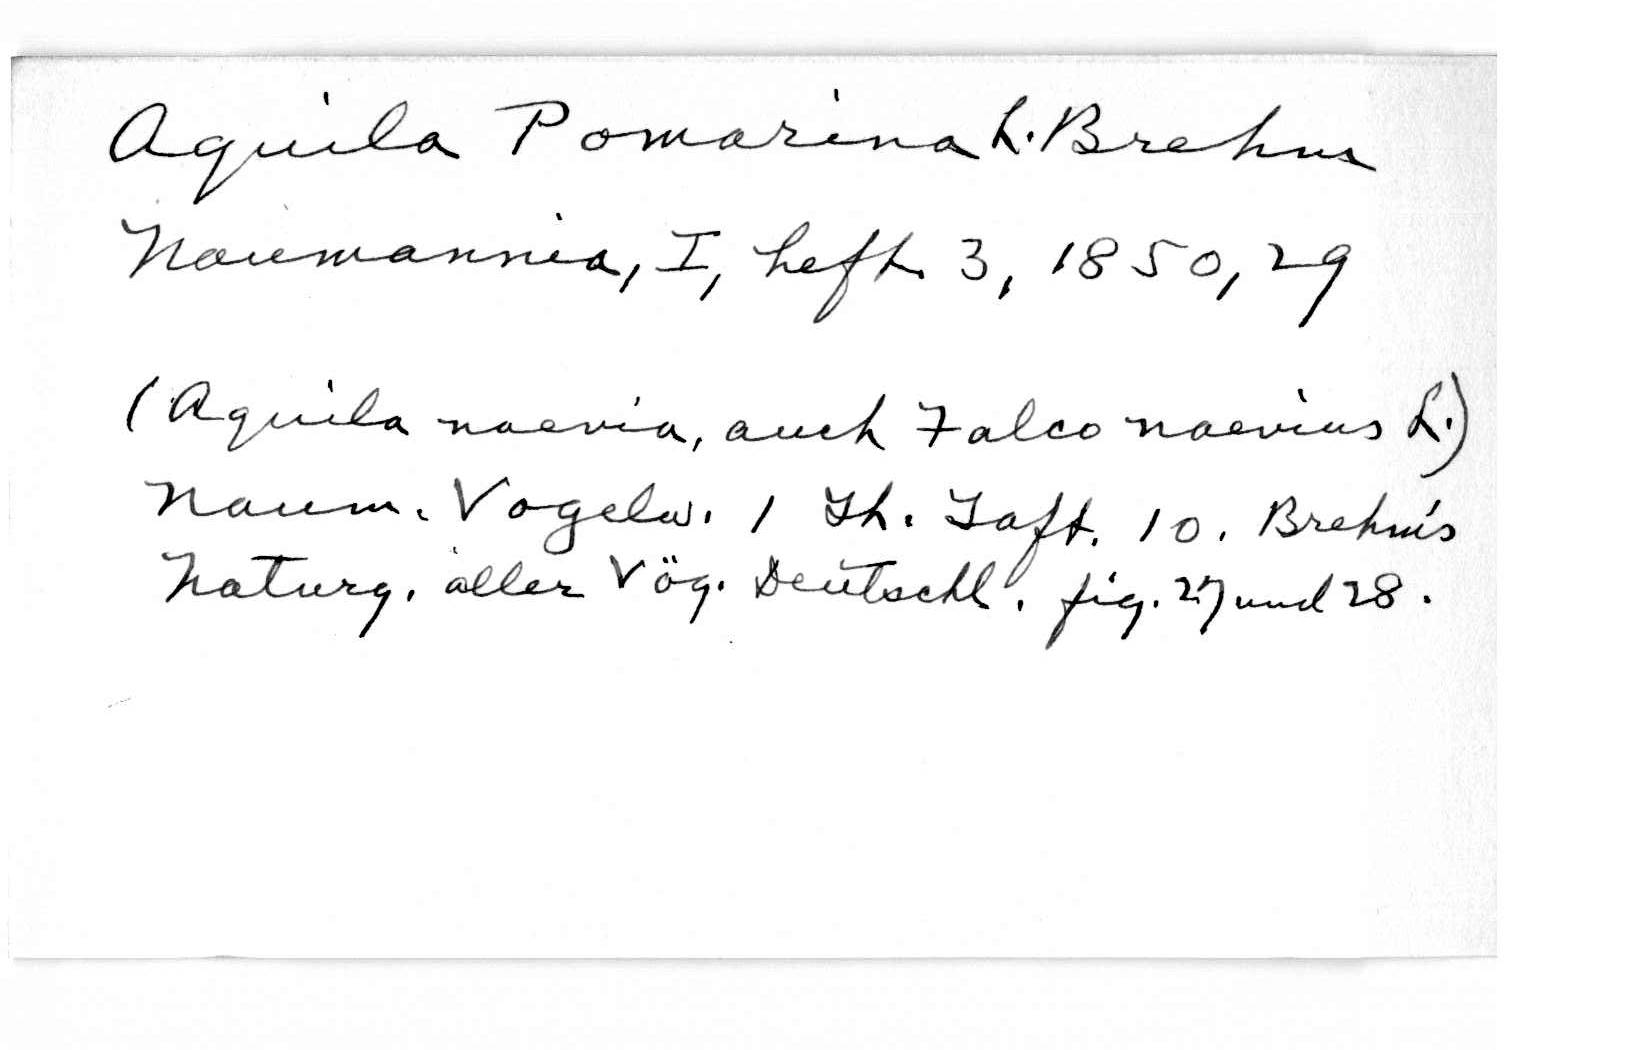 Aquila Pomarina L. Brehm
Naumannia, I, heft. 3, 1850, 29
(Aquila naevia, auch Falco naevius L.)
Naum. Vogelw. 1 Th. Taft. 10. Brehm's
Naturg. aller Vög. Deutschl. fig. 27 und 28.